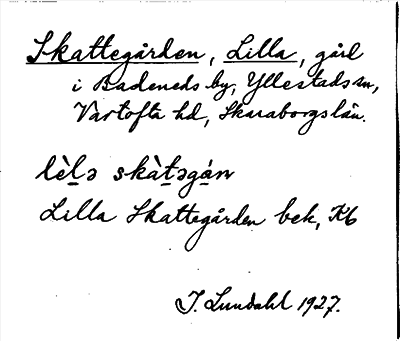 Skattegården, Lilla, gård
i Badeneds by, Yllestads sn,
Vartofta hd, Skaraborgs län.
lèl̠ə skàt̠əgán
Lilla Skattegården bek, Kb
J. Lundahl 1927.